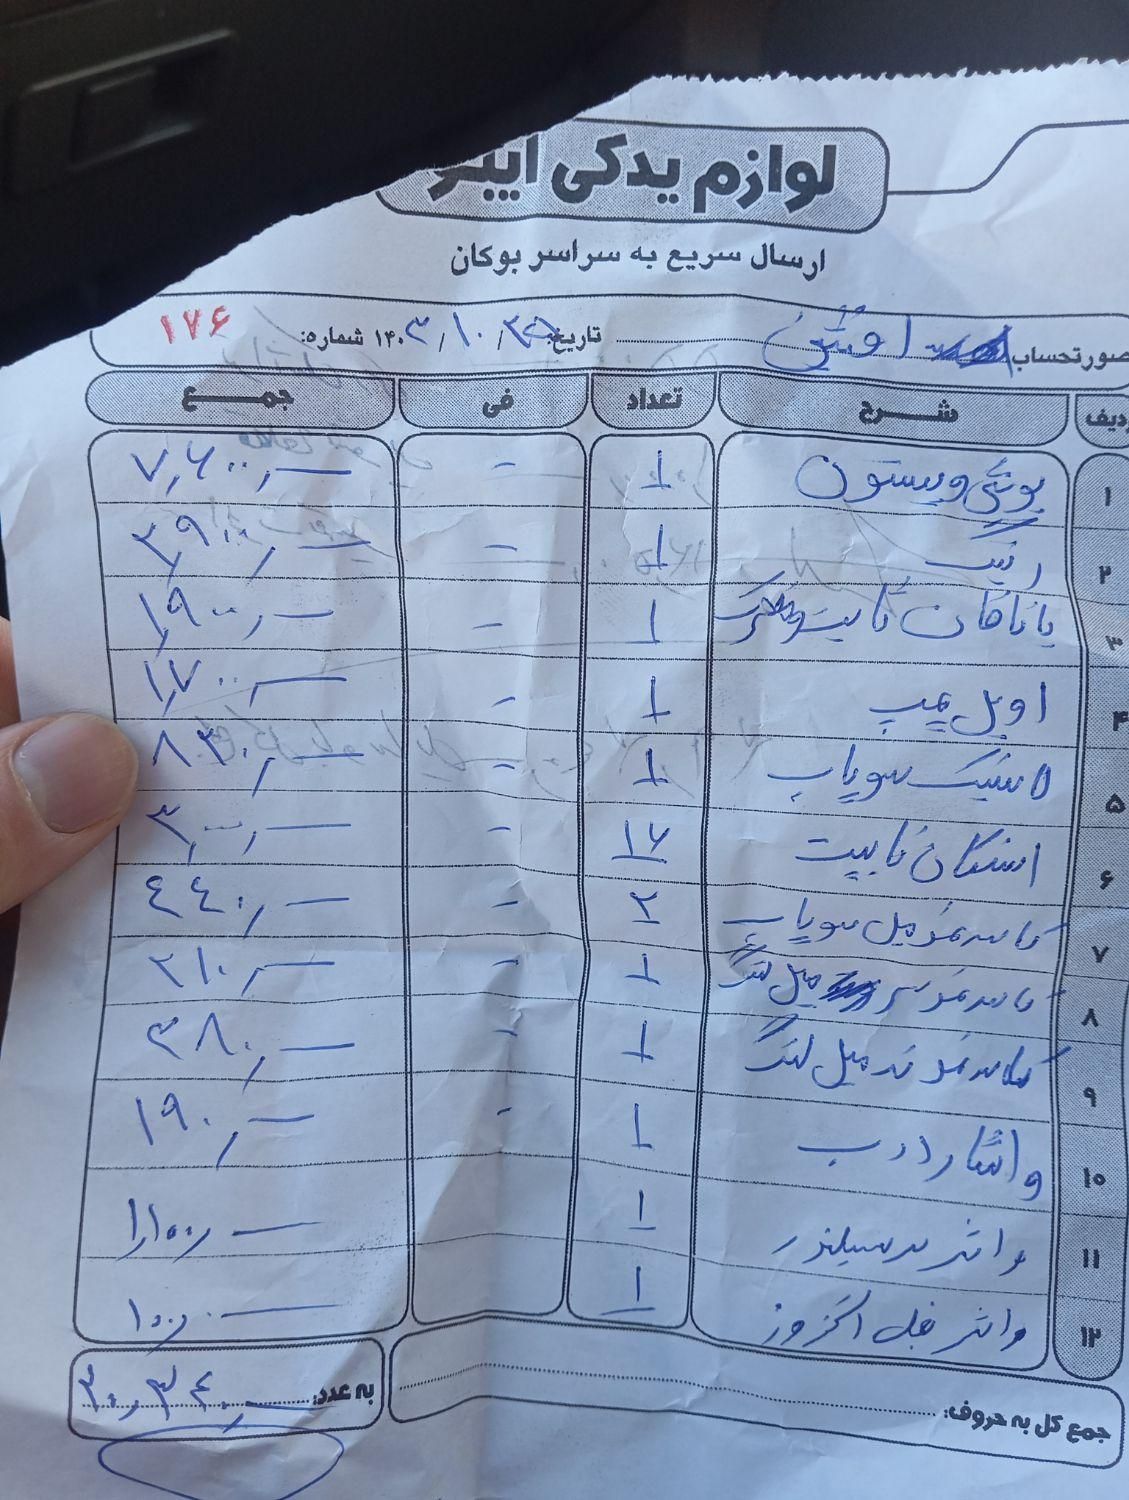 لوازم یدکی
ارسال سریع به سراسر بوکان
صورتحساب تاریخ: ۱۴۰۳/۱۰/ شماره: ۱۷۶
ردیف شرح تعداد فی جمع
۱ بوش و پیستون ۱ - ۷,۶۰۰,—
۲ رنگ ۱ - ۲,۹۰۰,—
۳ یاتاقان ثابت و متحرک ۱ - ۱,۹۰۰,—
۴ اویل پمپ ۱ - ۱,۷۰۰,—
۵ لاستیک سوپاپ ۱ - ۸۲۰,—
۶ استکان تایپیت ۱۶ - ۳,۰۰۰,—
۷ کاسه نمد میل سوپاپ ۲ - ۴۴۰,—
۸ کاسه نمد سر میل لنگ ۱ - ۲۱۰,—
۹ کاسه نمد ته میل لنگ ۱ - ۳۸۰,—
۱۰ واشر درب ۱ - ۱۹۰,—
۱۱ واشر سرسیلندر ۱ ۱,۱۰۰,—
۱۲ واشر اگزوز ۱ ۱۰۰,—
جمع کل به حروف: به عدد: ۲۰,۳۴۰,—